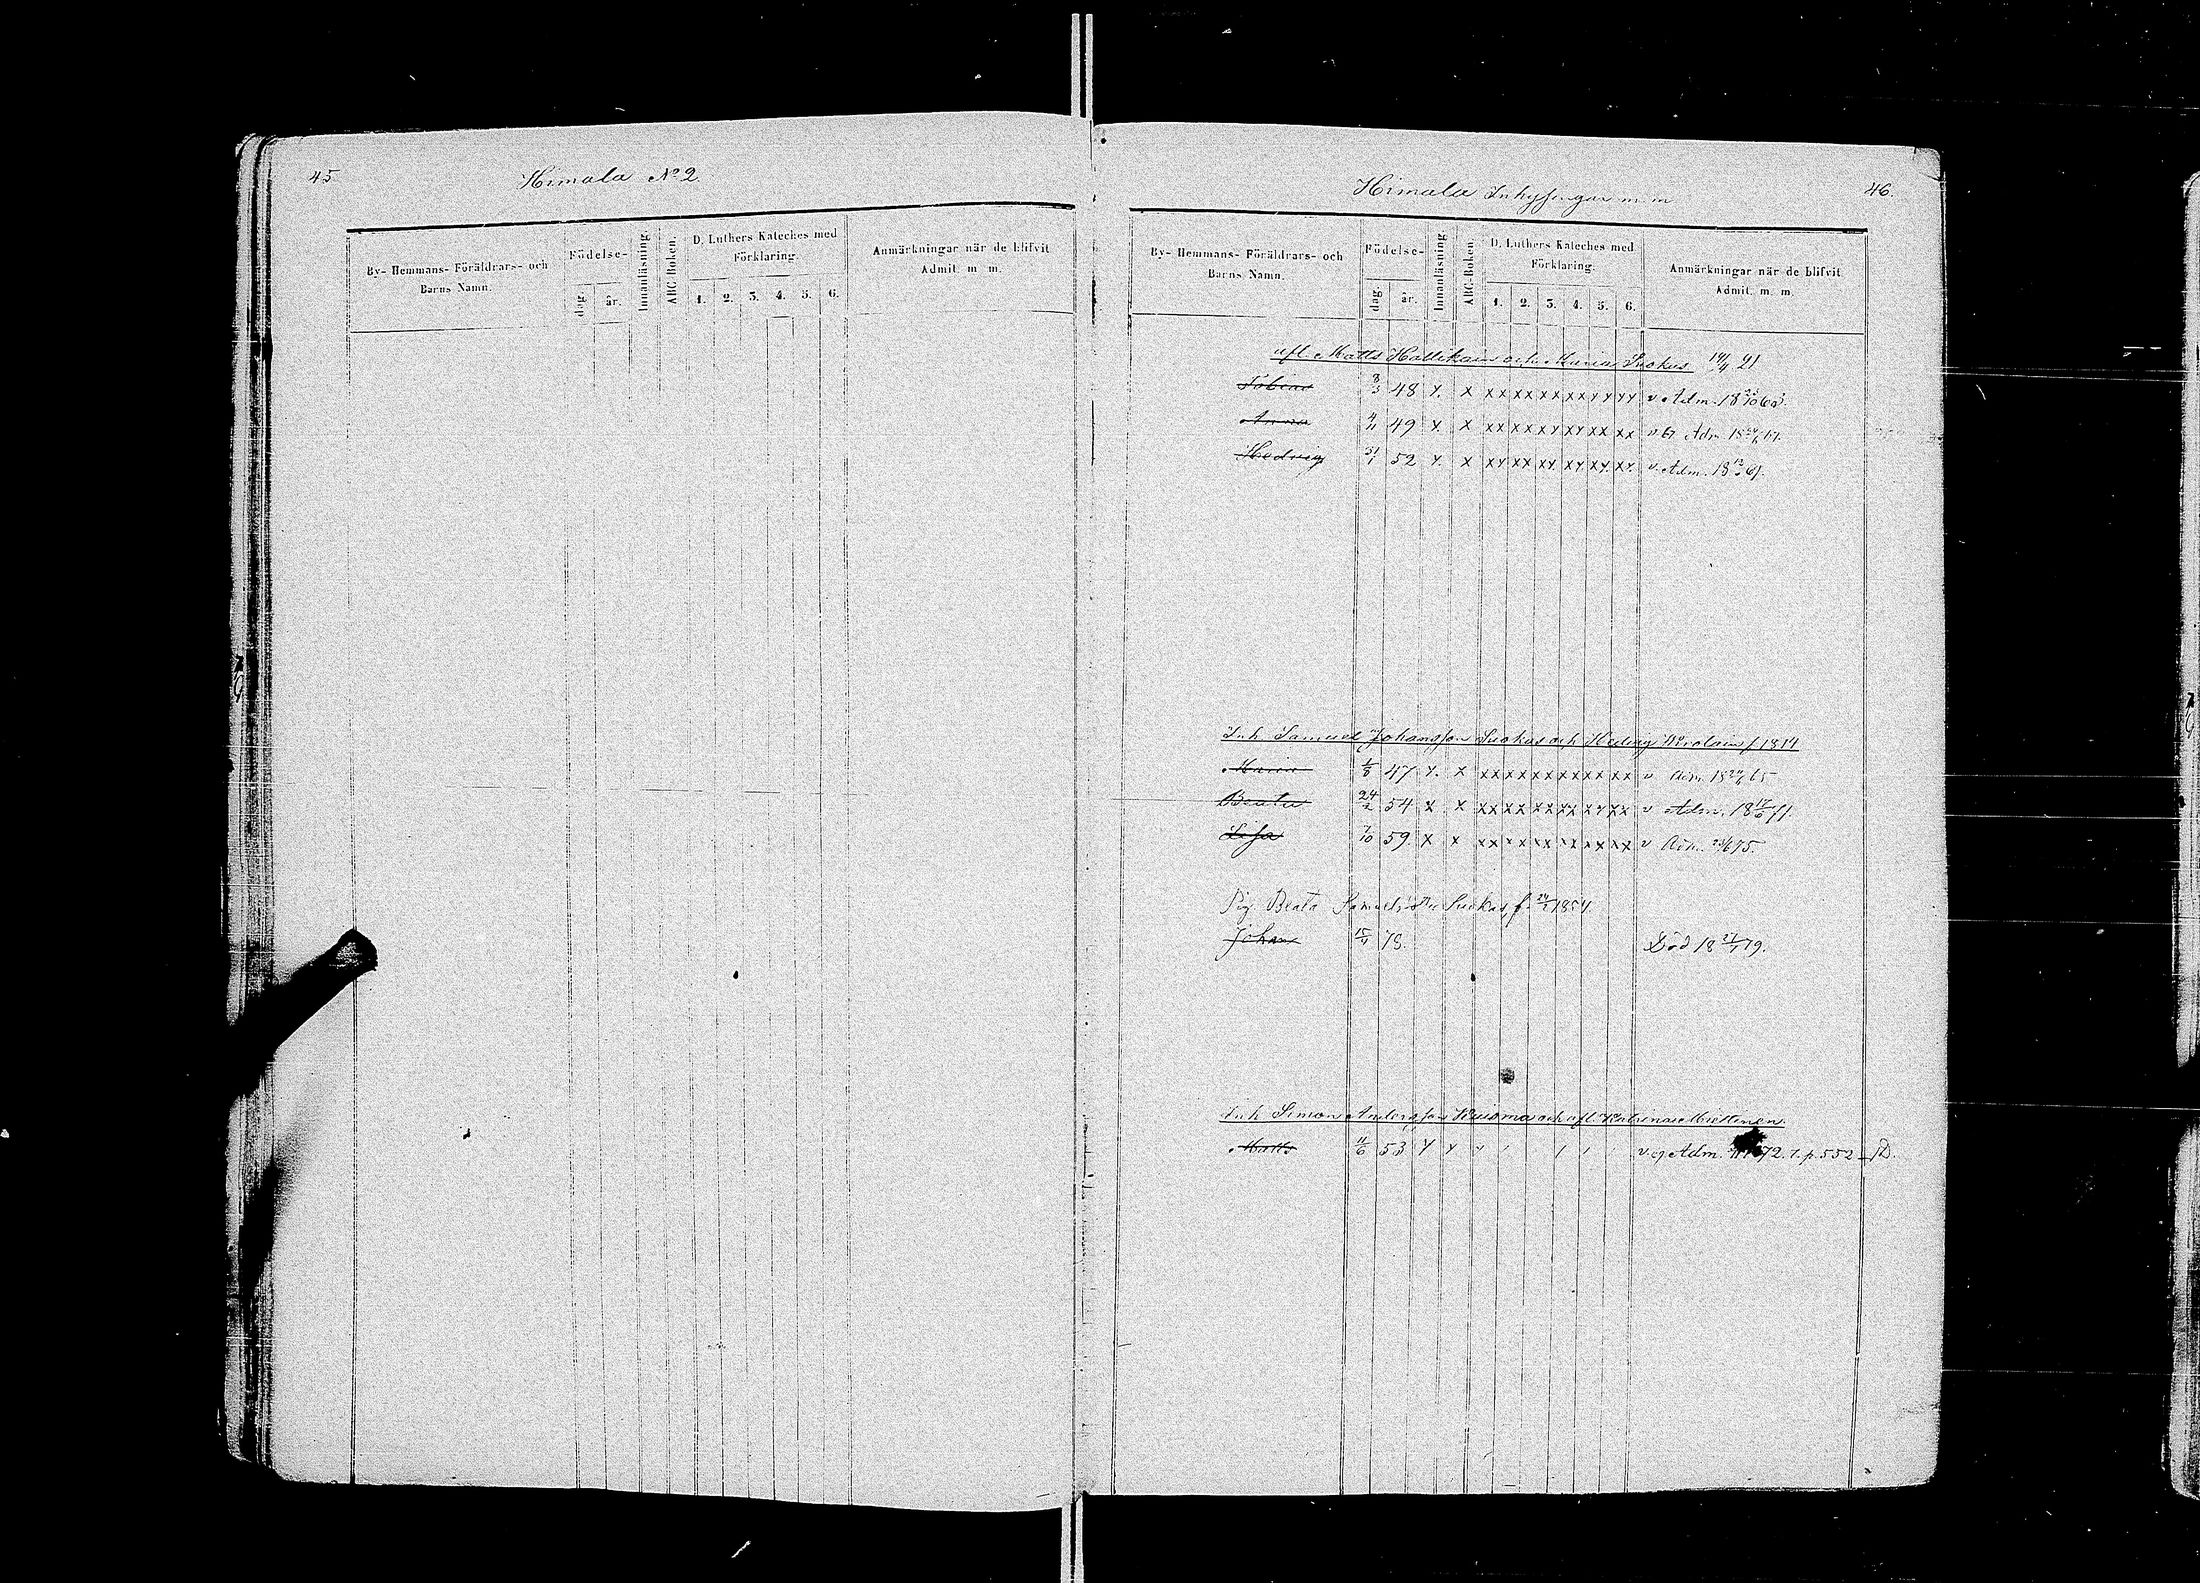 45
Himala No 2
By- Hemmans- Föräldrars- och Barns Namn.
Födelse-
dag.
år.
Innanläsning
ABC-Boken.
D. Luthers Kateches med Förklaring.
1. 2. 3. 4. 5. 6.
Anmärkningar när de blifvit Admit. m. m.
Himala Inhysingar m m
46.
By- Hemmans- Föräldrars- och Barns Namn.
Födelse-
dag.
år.
Innanläsning
ABC-Boken.
D. Luthers Kateches med Förklaring.
1. 2. 3. 4. 5. 6.
Anmärkningar när de blifvit Admit. m. m.
afl. Matts Hallikain och Maria Suokas 21
Tobias 8/3 48 x x xx xx xx xx xx xx v Adm.
Anna 4/11 49 x x xx xx xx xx xx xx Adm.
Hedvig 31/1 52 x x xx xx xx xx xx xx v Adm.
Inh Samuel Johansson Suokas och Hedvig f 1814
Maria 1/8 47 x x xx xx xx xx xx xx v Adm. 65
Beata 24/2 54 x x xx xx xx xx xx xx v Adm. 71.
Lisa 7/10 59 x x xx xx xx xx xx xx v Adm. 75.
Pig. Beata Samuelsdtr Suokas, f. 24/2 1854
Johan 15/4 78. Död 18 79.
Inh Simon Andersson Kuosma och afl. Katrina Miettinen
Matts 11/6 53 x x v. ej Adm. 72. p. 552